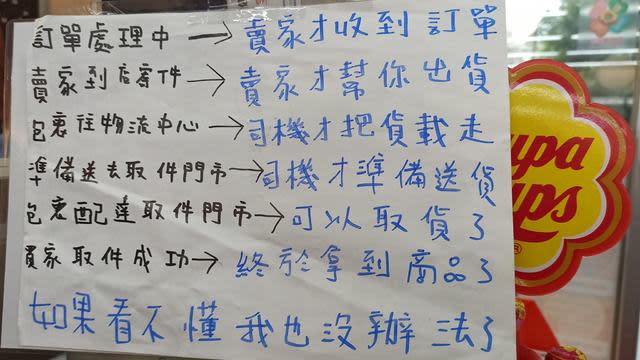 訂單處理中→賣家才收到訂單
賣家到店寄件→賣家才幫你出貨
包裹往物流中心→司機才把貨載走
準備送去取件門市→司機才準備送貨
包裹配達取件門市→可以取貨了
買家取件成功→終於拿到商品了
如果看不懂我也沒辦法了
upa
ups